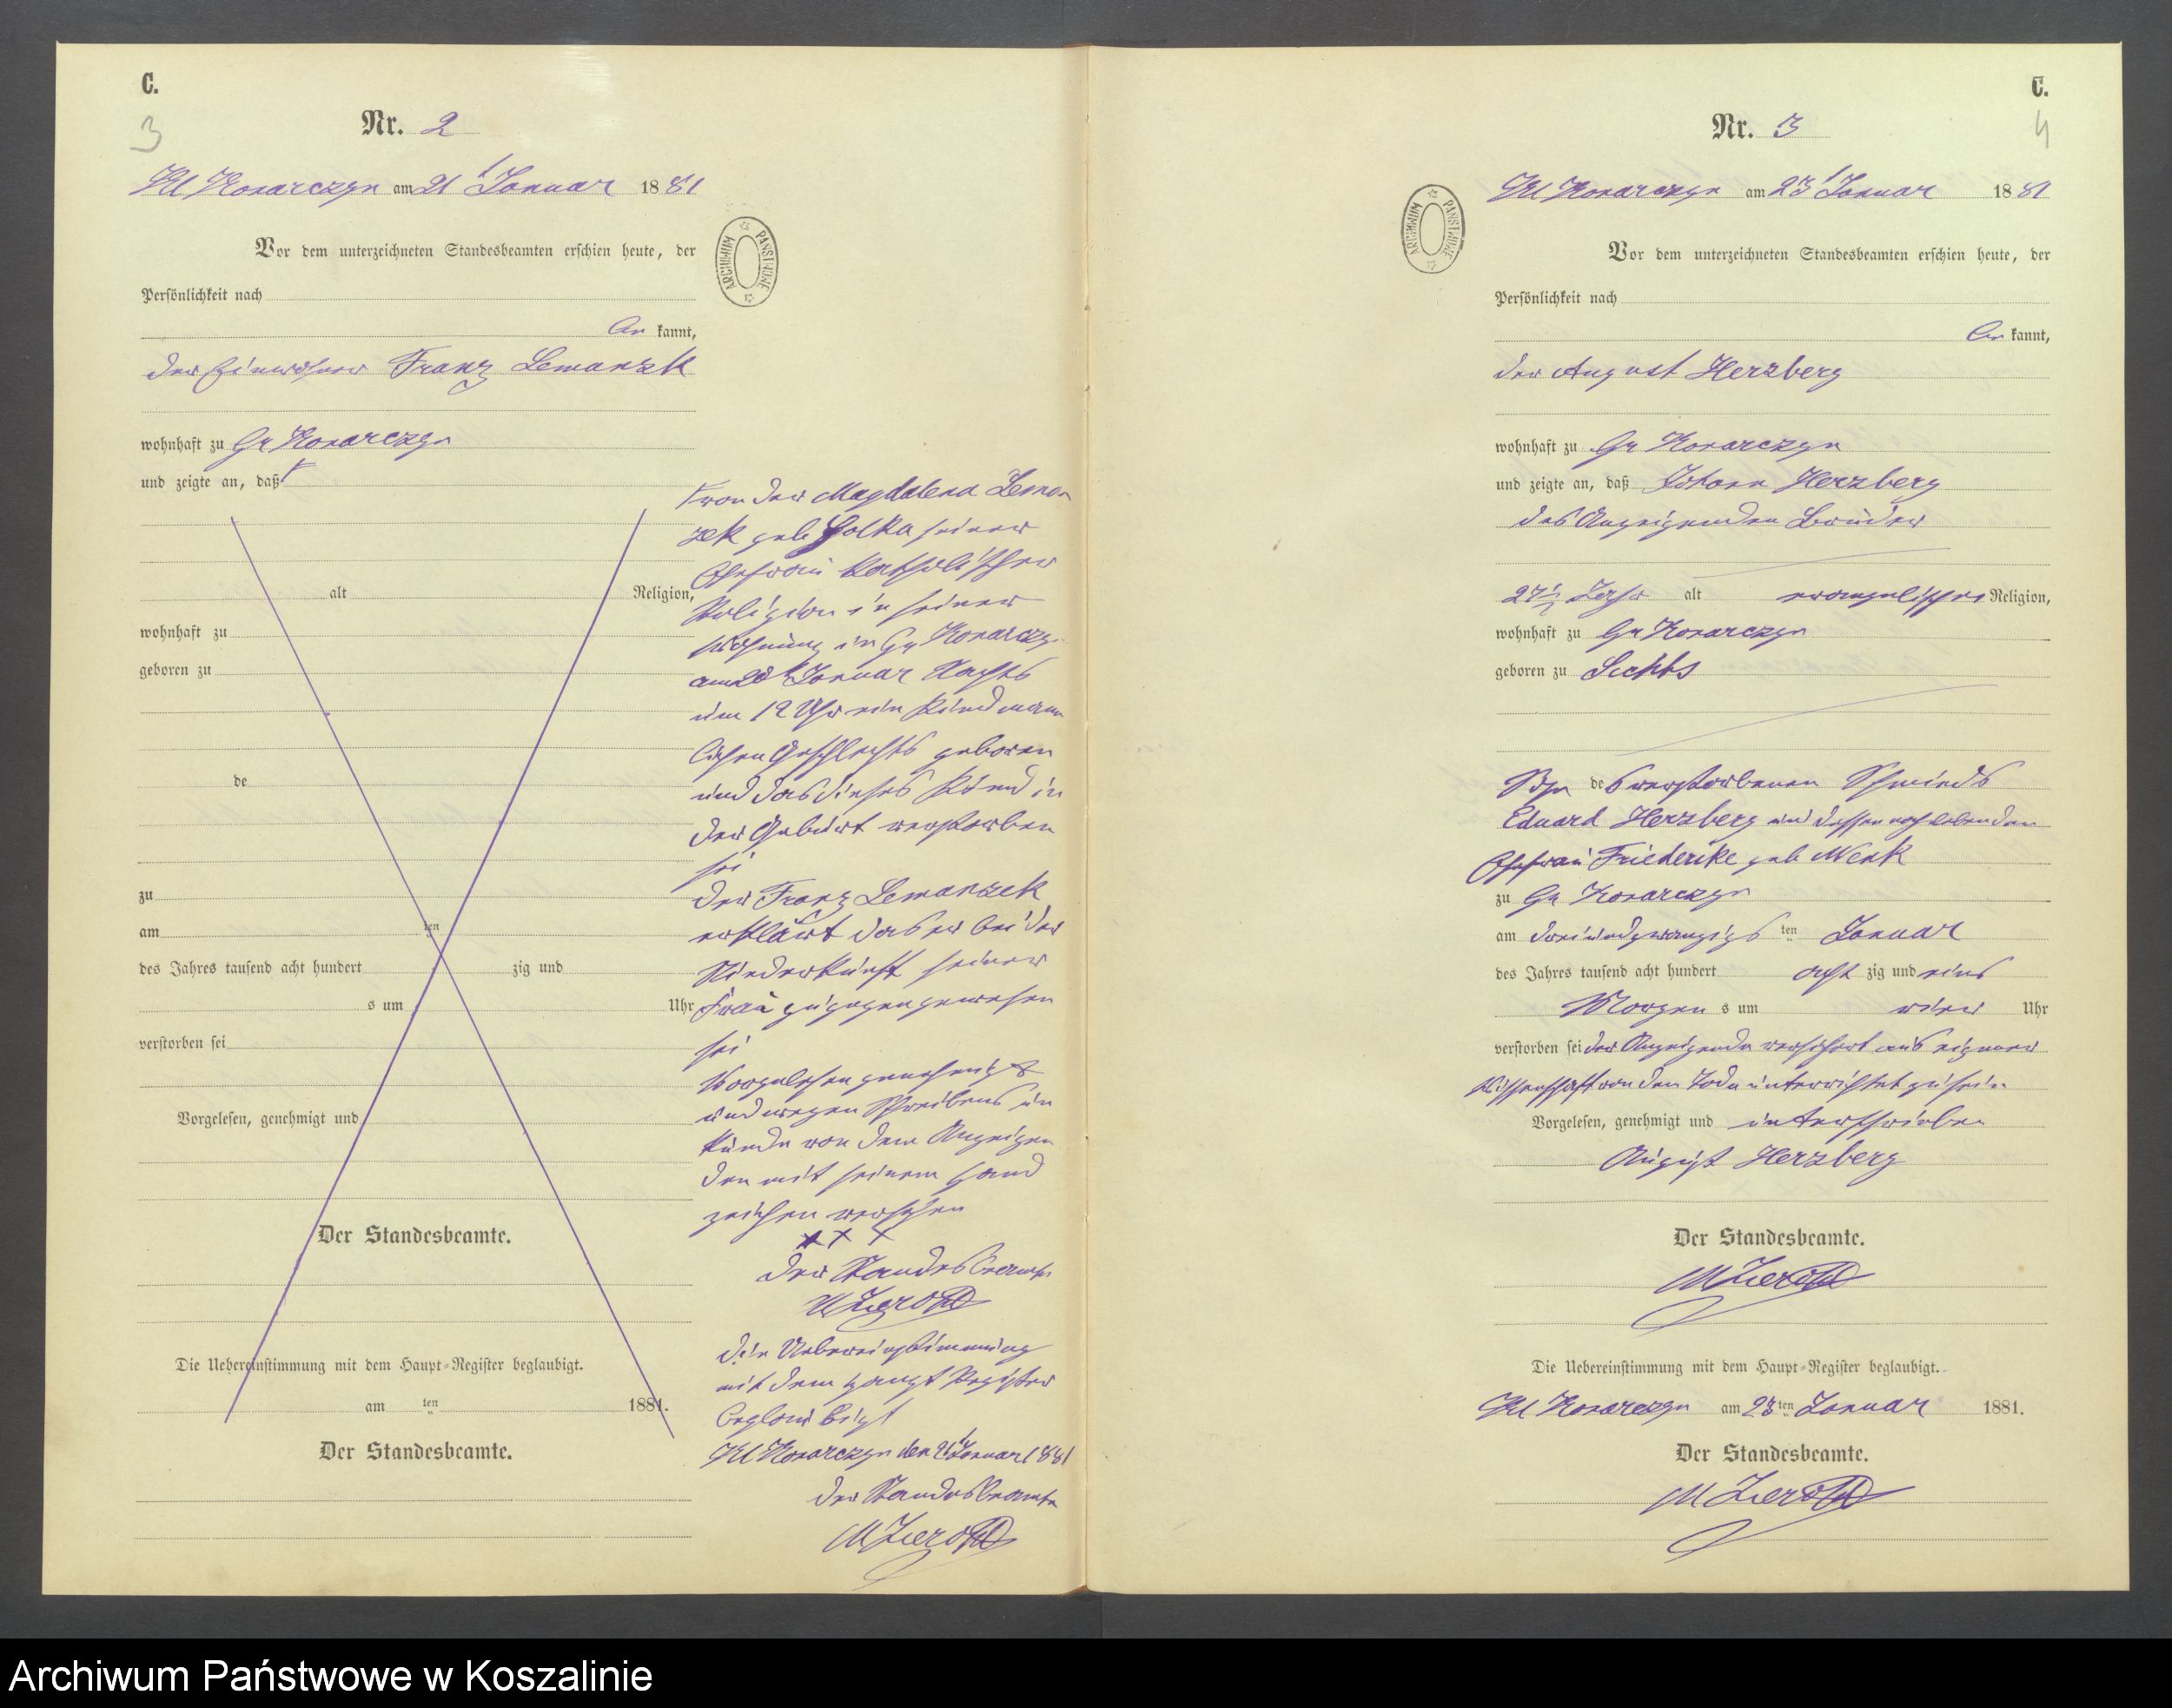 C.
3
Nr. 2
Kl Konarczyn am 21 Januar 1881
Vor dem unterzeichneten Standesbeamten erschien heute, der
Persönlichkeit nach
be kannt,
der Einwohner Franz Lemanzek
wohnhaft zu Gr Konarczyn
und zeigte an, daß
alt Religion,
wohnhaft zu
geboren zu
de
zu
am ten
des Jahres tausend acht hundert zig und
s um Uhr
verstorben sei
Vorgelesen, genehmigt und
Der Standesbeamte.
Die Uebereinstimmung mit dem Haupt-Register beglaubigt.
am ten 1881.
Der Standesbeamte.
ARCHIWUM PAŃSTWOWE
von der Magdalena Leman
zek geb seiner
Ehefrau katholischer
Religion in seiner
Wohnung in Gr Konarczyn
am 20 Januar Nachts
um 12 Uhr ein Kind männ
lichen Geschlechts geboren
und das dieses Kind in
der Geburt verstorben
sei
der Franz Lemanzek
erklärt das er bei der
Niederkunft seiner
Frau zugegen gewesen
sei
Vorgelesen genehmigt
und wegen Schreibens un
kunde von dem Anzeigen
den mit seinem Hand
zeichen versehen
x x x
der Standesbeamte
die Uebereinstimmung
mit dem Haupt Register
beglaubigt
Kl Konarczyn den 21 Januar 1881
der Standesbeamte
C.
4
Nr. 3
Kl Konarczyn am 23 Januar 1881
ARCHIWUM PAŃSTWOWE
Vor dem unterzeichneten Standesbeamten erschien heute, der
Persönlichkeit nach
be kannt,
der August Herzberg
wohnhaft zu Gr Konarczyn
und zeigte an, daß Johann Herzberg
des Anzeigenden Bruder
27½ Jahr alt evangelischer Religion,
wohnhaft zu Gr Konarczyn
geboren zu
Sohn des verstorbenen Schmieds
Eduard Herzberg und dessen nochlebenden
Ehefrau Friederike geb
zu Gr Konarczyn
am dreiundzwanzigs ten Januar
des Jahres tausend acht hundert acht zig und eins
Morgen s um vier Uhr
verstorben sei der Anzeigende versichert aus eigener
Wissenschaft von dem Tode unterrichtet zu sein
Vorgelesen, genehmigt und unterschrieben
August Herzberg
Der Standesbeamte.
Die Uebereinstimmung mit dem Haupt-Register beglaubigt.
Kl Konarczyn am 23ten Januar 1881.
Der Standesbeamte.
Archiwum Państwowe w Koszalinie